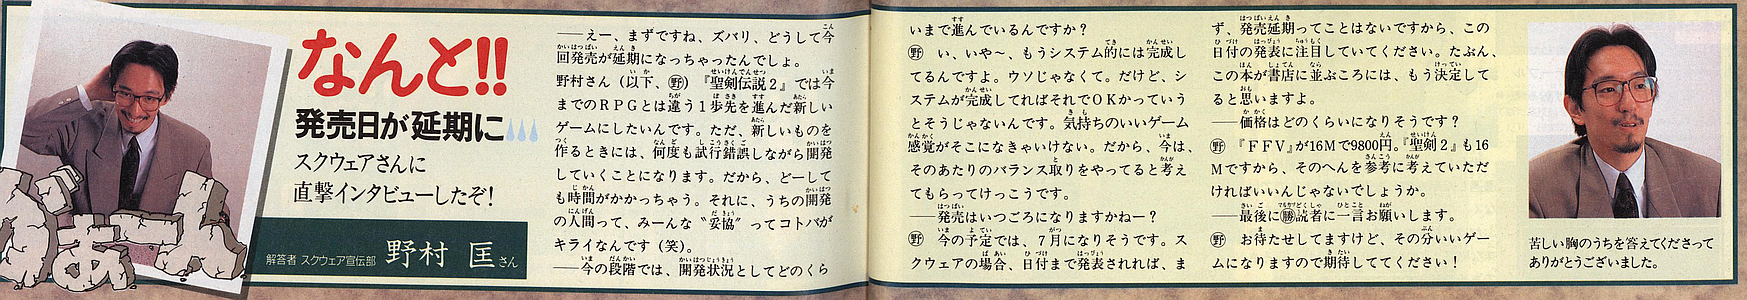 なんと!!
発売日が延期に
スクウェアさんに
直撃インタビューしたぞ！
がーん
解答者 スクウェア宣伝部 野村 匡さん
――えー、まずですね、ズバリ、どうして今
回発売が延期になっちゃったんでしょ。
野村さん（以下、野）『聖剣伝説２』では今
までのＲＰＧとは違う１歩先を進んだ新しい
ゲームにしたいんです。ただ、新しいものを
作るときには、何度も試行錯誤しながら開発
していくことになります。だから、どーして
も時間がかかっちゃう。それに、うちの開発
の人間って、みーんな〝妥協〟ってコトバが
キライなんです（笑）。
――今の段階では、開発状況としてどのくら
いまで進んでいるんですか？
野 い、いや～、もうシステム的には完成し
てるんですよ。ウソじゃなくて。だけど、シ
ステムが完成してればそれでＯＫかっていう
とそうじゃないんです。気持ちのいいゲーム
感覚がそこになきゃいけない。だから、今は、
そのあたりのバランス取りをやってると考え
てもらってけっこうです。
――発売はいつごろになりますかねー？
野 今の予定では、７月になりそうです。ス
クウェアの場合、日付まで発表されれば、ま
ず、発売延期ってことはないですから、この
日付の発表に注目していてください。たぶん、
この本が書店に並ぶころには、もう決定して
ると思いますよ。
――価格はどのくらいになりそうです？
野 『ＦＦⅤ』が16Mで9800円。『聖剣２』も16
Mですから、そのへんを参考に考えていただ
ければいいんじゃないでしょうか。
――最後に㊝読者に一言お願いします。
野 お待たせしてますけど、その分いいゲー
ムになりますので期待しててください！
苦しい胸のうちを答えてくださって
ありがとうございました。